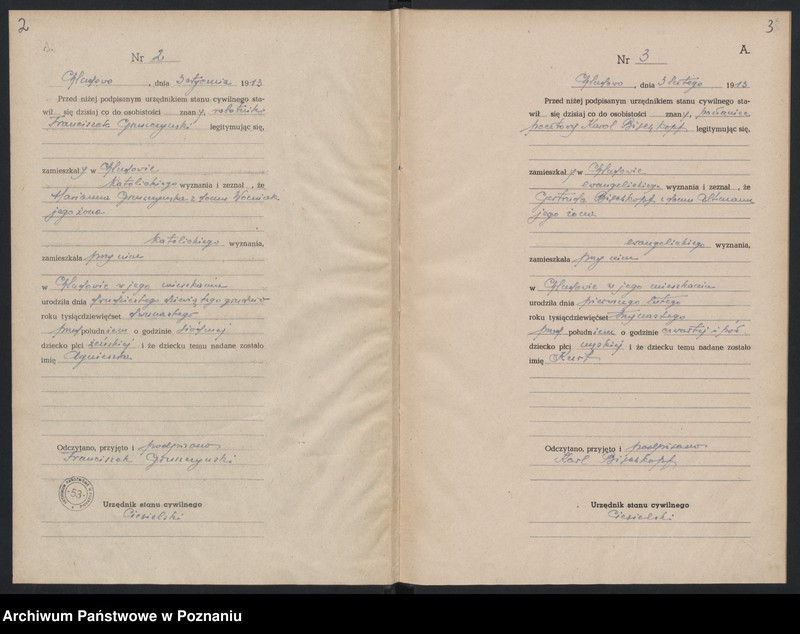 2
Nr 2
, dnia 3 stycznia 1913
Przed niżej podpisanym urzędnikiem stanu cywilnego sta-
wił się dzisiaj co do osobistości znany, robotnik
Franciszek legitymując się,
zamieszkały w
katolickiego wyznania i zeznał , że
Marianna z domu Woźniak
jego żona
katolickiego wyznania,
zamieszkała przy nim
w w jego mieszkaniu
urodziła dnia dwudziestego dziewiątego grudnia
roku tysiącdziewięćset dwunastego
przed południem o godzinie siódmej
dziecko płci żeńskiej i że dziecku temu nadane zostało
imię Agnieszka
Odczytano, przyjęto i podpisano
Franciszek
53
Urzędnik stanu cywilnego
Ciesielski
3
A.
Nr 3
, dnia 3 lutego 1913
Przed niżej podpisanym urzędnikiem stanu cywilnego sta-
wił się dzisiaj co do osobistości znany,
pocztowy Karol legitymując się,
zamieszkały w
ewangelickiego wyznania i zeznał , że
z domu
jego żona
ewangelickiego wyznania,
zamieszkała przy nim
w w jego mieszkaniu
urodziła dnia pierwszego lutego
roku tysiącdziewięćset trzynastego
przed południem o godzinie czwartej i pół
dziecko płci męskiej i że dziecku temu nadane zostało
imię Kurt
Odczytano, przyjęto i podpisano
Karl
Urzędnik stanu cywilnego
Ciesielski
Archiwum Państwowe w Poznaniu